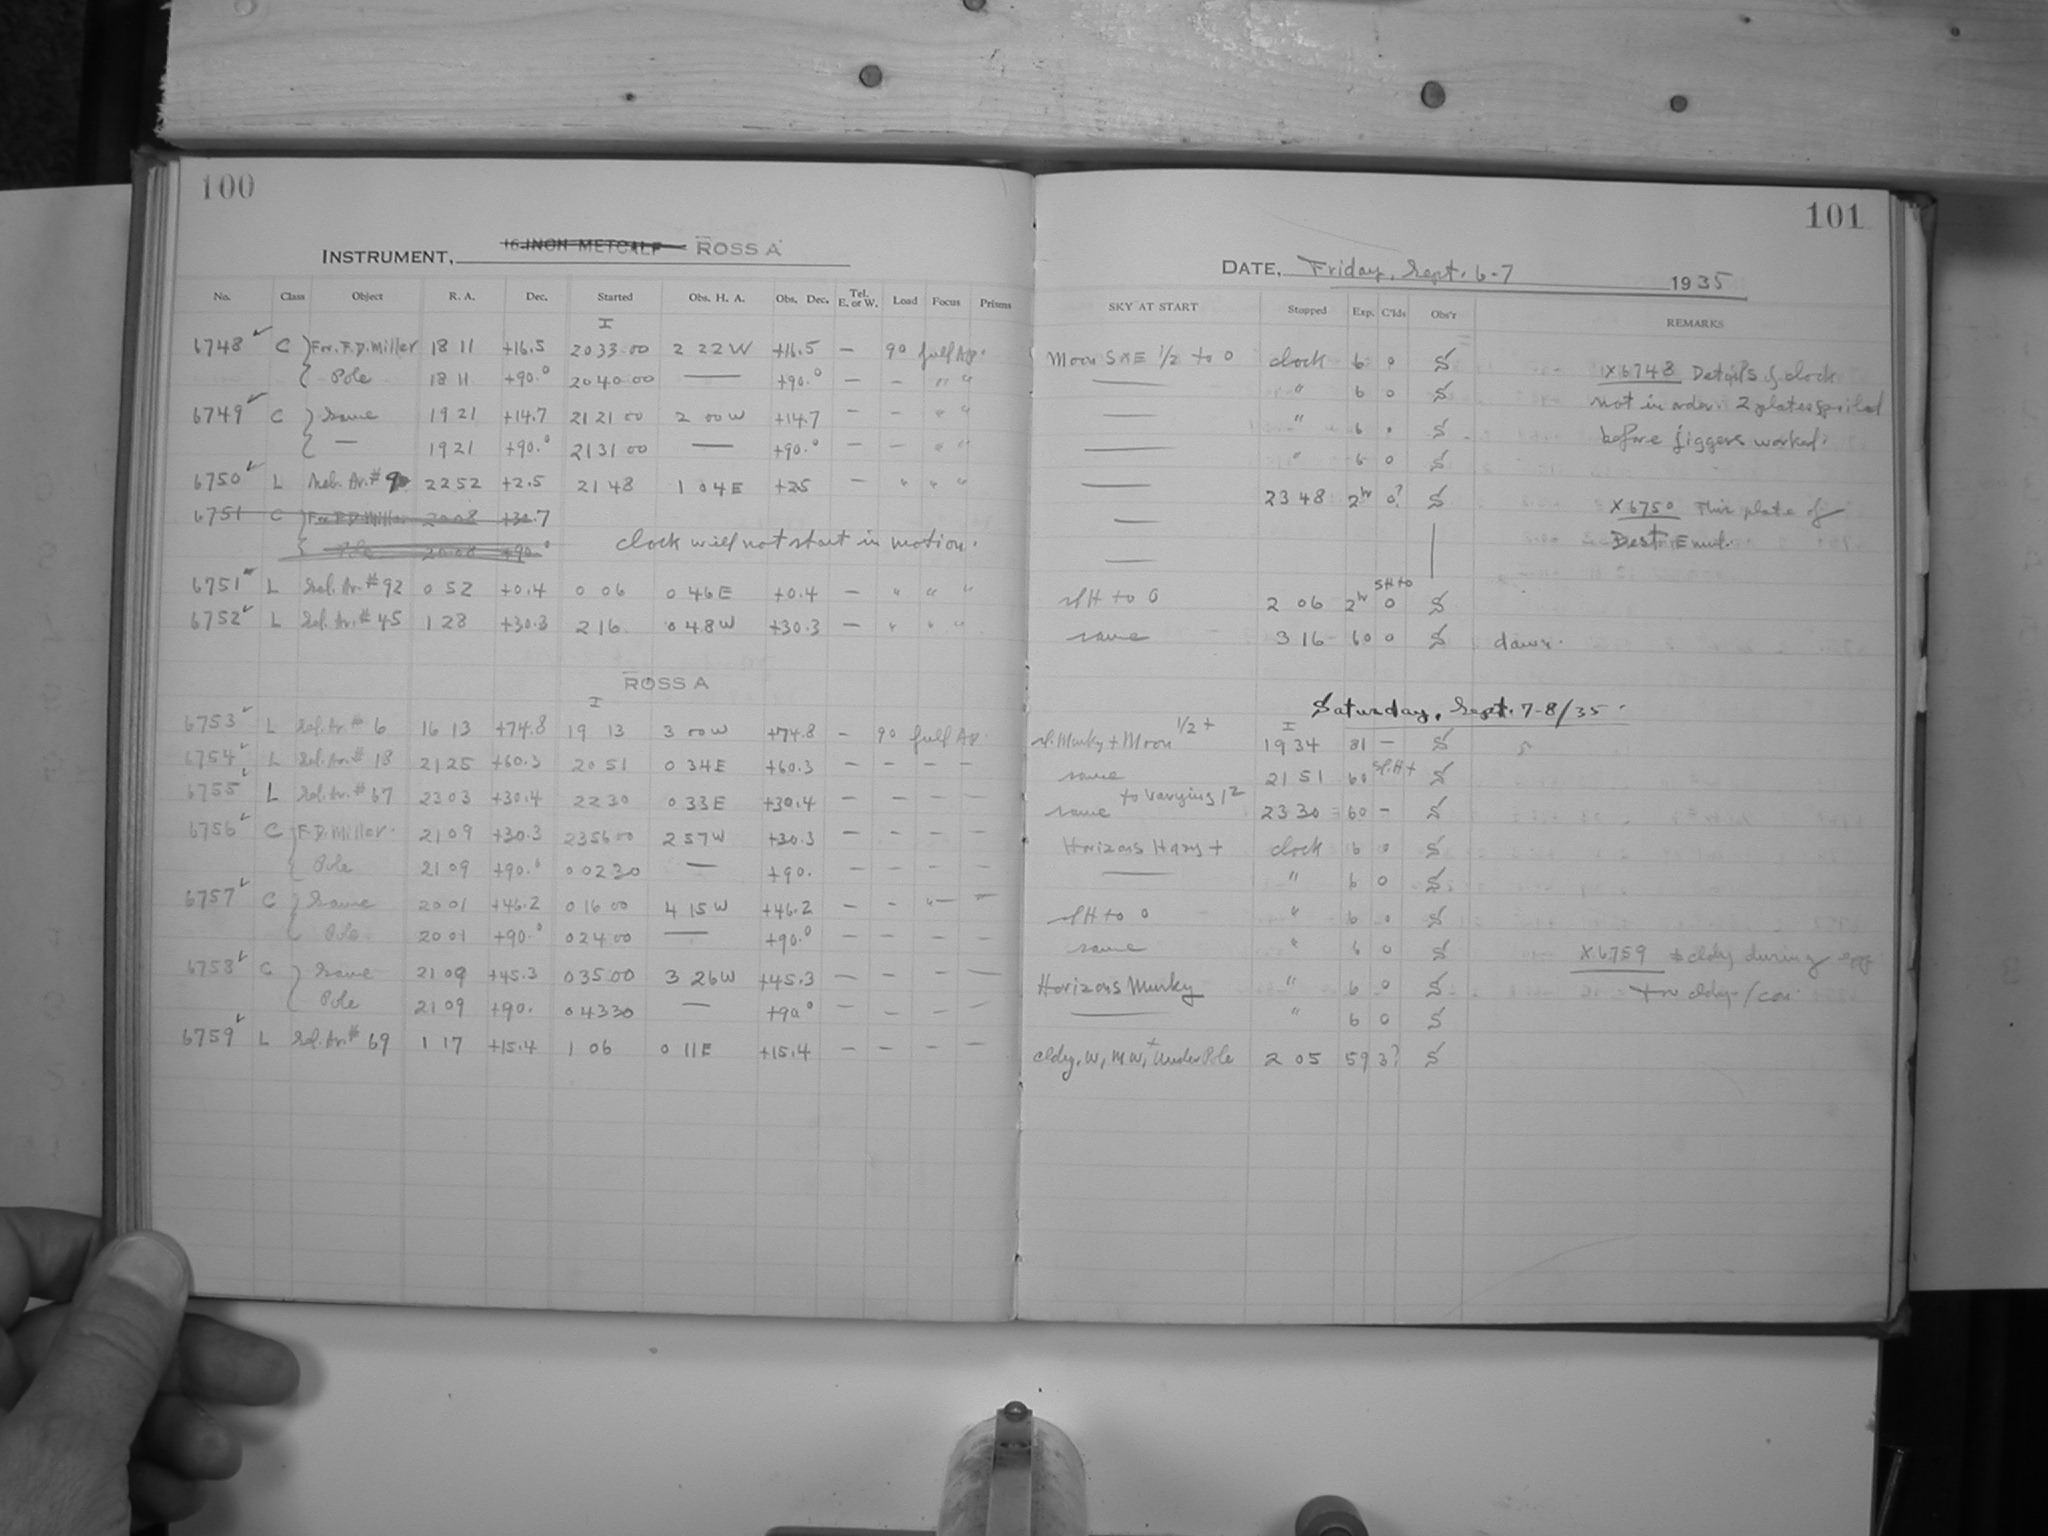 100
INSTRUMENT, 16-INCH METCALF ROSS A
No. Class Object R. A. Dec. Started Obs. H. A. Obs. Dec. Tel. E. or W. Load Focus Prisms
I
6748 C For. F.D. Miller 18 11 +16.5 20 33 00 2 22 W +16.5 — 90 full Ap.
Pole 18 11 +90.° 20 40 00 — +90.° — – " "
6749 C Same 19 21 +14.7 21 21 00 2 00 W +14.7 – – " "
— 19 21 +90.° 21 31 00 — +90.° – – " "
6750 L Sel. Ar. # 22 52 +2.5 21 48 1 04 E +25 – " " "
6751 C For F.D. Miller 20 08 +30.7
Pole 20 08 +90.° clock will not start in motion.
6751 L Sel. Ar. # 92 0 52 +0.4 0 06 0 46 E +0.4 – " " "
6752 L Sel. Ar. # 45 1 28 +30.3 2 16 0 48 W +30.3 — " " "
ROSS A
I
6753 L Sel. Ar. # 6 16 13 +74.8 19 13 3 00 W +74.8 – 90 full Ap.
6754 L Sel. Ar. # 18 21 25 +60.3 20 51 0 34 E +60.3 – – – –
6755 L Sel. Ar. # 67 23 03 +30.4 22 30 0 33 E +30.4 – – – –
6756 C F.D. Miller. 21 09 +30.3 23 56 00 2 57 W +30.3 – – – –
Pole 21 09 +90.° 0 02 30 — +90. – – – –
6757 C Same 20 01 +46.2 0 16 00 4 15 W +46.2 – – "– –
Pole. 20 01 +90.° 0 24 00 — +90.° – – – –
6758 C Same 21 09 +45.3 0 35 00 3 26 W +45.3 – – – –
Pole 21 09 +90. 0 43 30 — +90° – – – –
6759 L Sel. Ar. # 69 1 17 +15.4 1 06 0 11 E +15.4 – – – –
101
DATE, Friday, Sept. 6-7 1935
SKY AT START Stopped Exp. C'lds Obs'r REMARKS
Moon S×E 1/2 to 0 clock 6 0 S X6748 Details of clock
— " 6 0 S not in order. 2 plates spoiled
— " 6 0 S before jiggers worked.
— " 6 0 S
— 23 48 2hr 0? S X6750 This plate of
— Dest. Emul.
—
sl H to 0 2 06 2hr sH to 0 S
same 3 16 60 0 S dawn.
Saturday, Sept. 7-8/35.
I
sl. Murky + Moon 1/2 + 19 34 81 – S
same 21 51 60 sl. H + S
same to varying 1 2 23 30 60 – S
Horizons Hazy + clock 6 0 S
— " 6 0 S
sl H to 0 " 6 0 S
same " 6 0 S X6759 cldy during exp
Horizons Murky " 6 0 S
— " 6 0 S
cldy. W, MW, + Under Pole 2 05 59 3? S